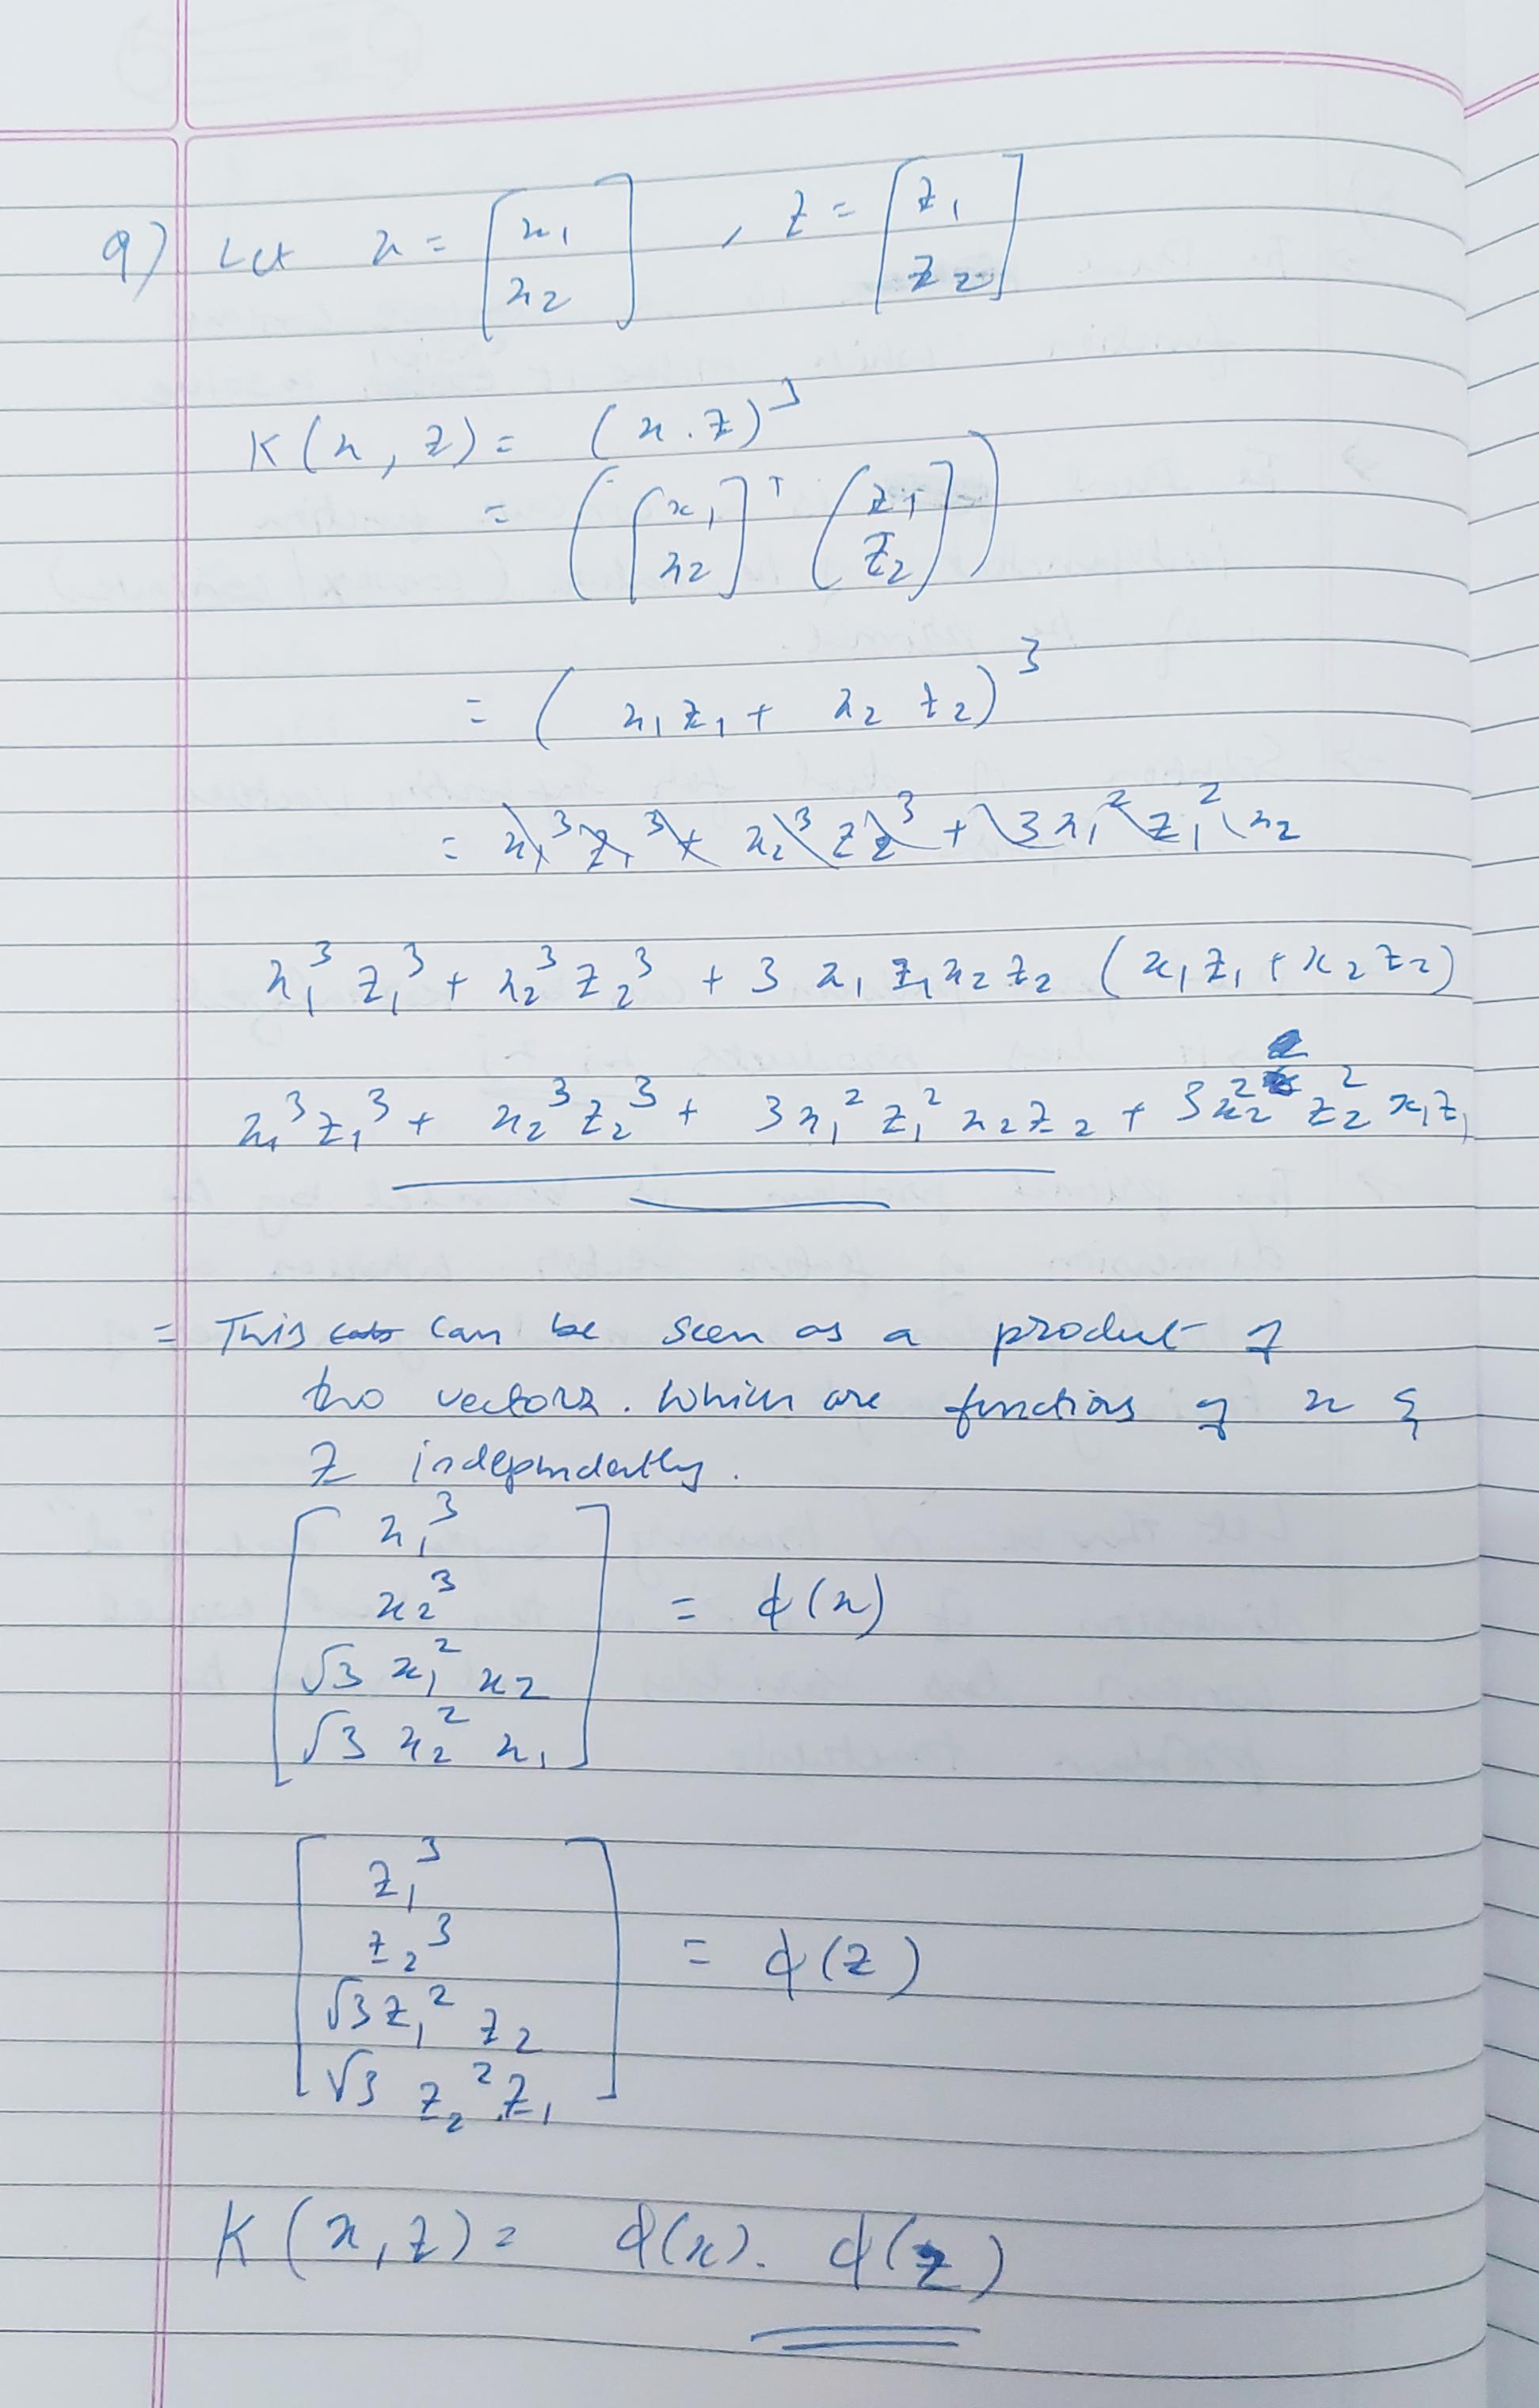 9) Let x = [x₁ x₂] , z = [z₁ z₂]
K(x, z) = (x . z)³
= ([x₁ x₂]ᵀ [z₁ z₂])
= (x₁z₁ + x₂ z₂)³
= x₁³z₁³ + x₂³z₂³ + 3x₁²z₁²x₂
x₁³ z₁³ + x₂³ z₂³ + 3 x₁ z₁ x₂ z₂ (x₁z₁ + x₂z₂)
x₁³z₁³ + x₂³z₂³ + 3x₁² z₁² x₂z₂ + 3x₂² z₂² x₁z₁
= This can be seen as a product of
two vectors. Which are functions of x &
z independently.
[x₁³
x₂³
√3 x₁² x₂
√3 x₂² x₁] = ϕ(x)
[z₁³
z₂³
√3 z₁² z₂
√3 z₂² z₁] = ϕ(z)
K(x, z) = ϕ(x). ϕ(z)